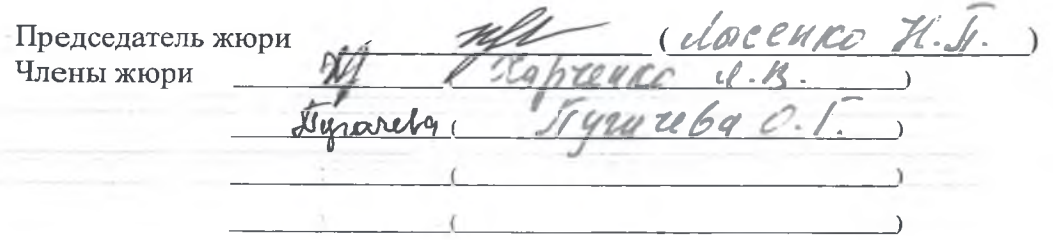 Председатель жюри ( Лысенко Н.П. )
Члены жюри ( Харченко А.В. )
Пугачева ( Пугачева О.Г. )
( )
( )